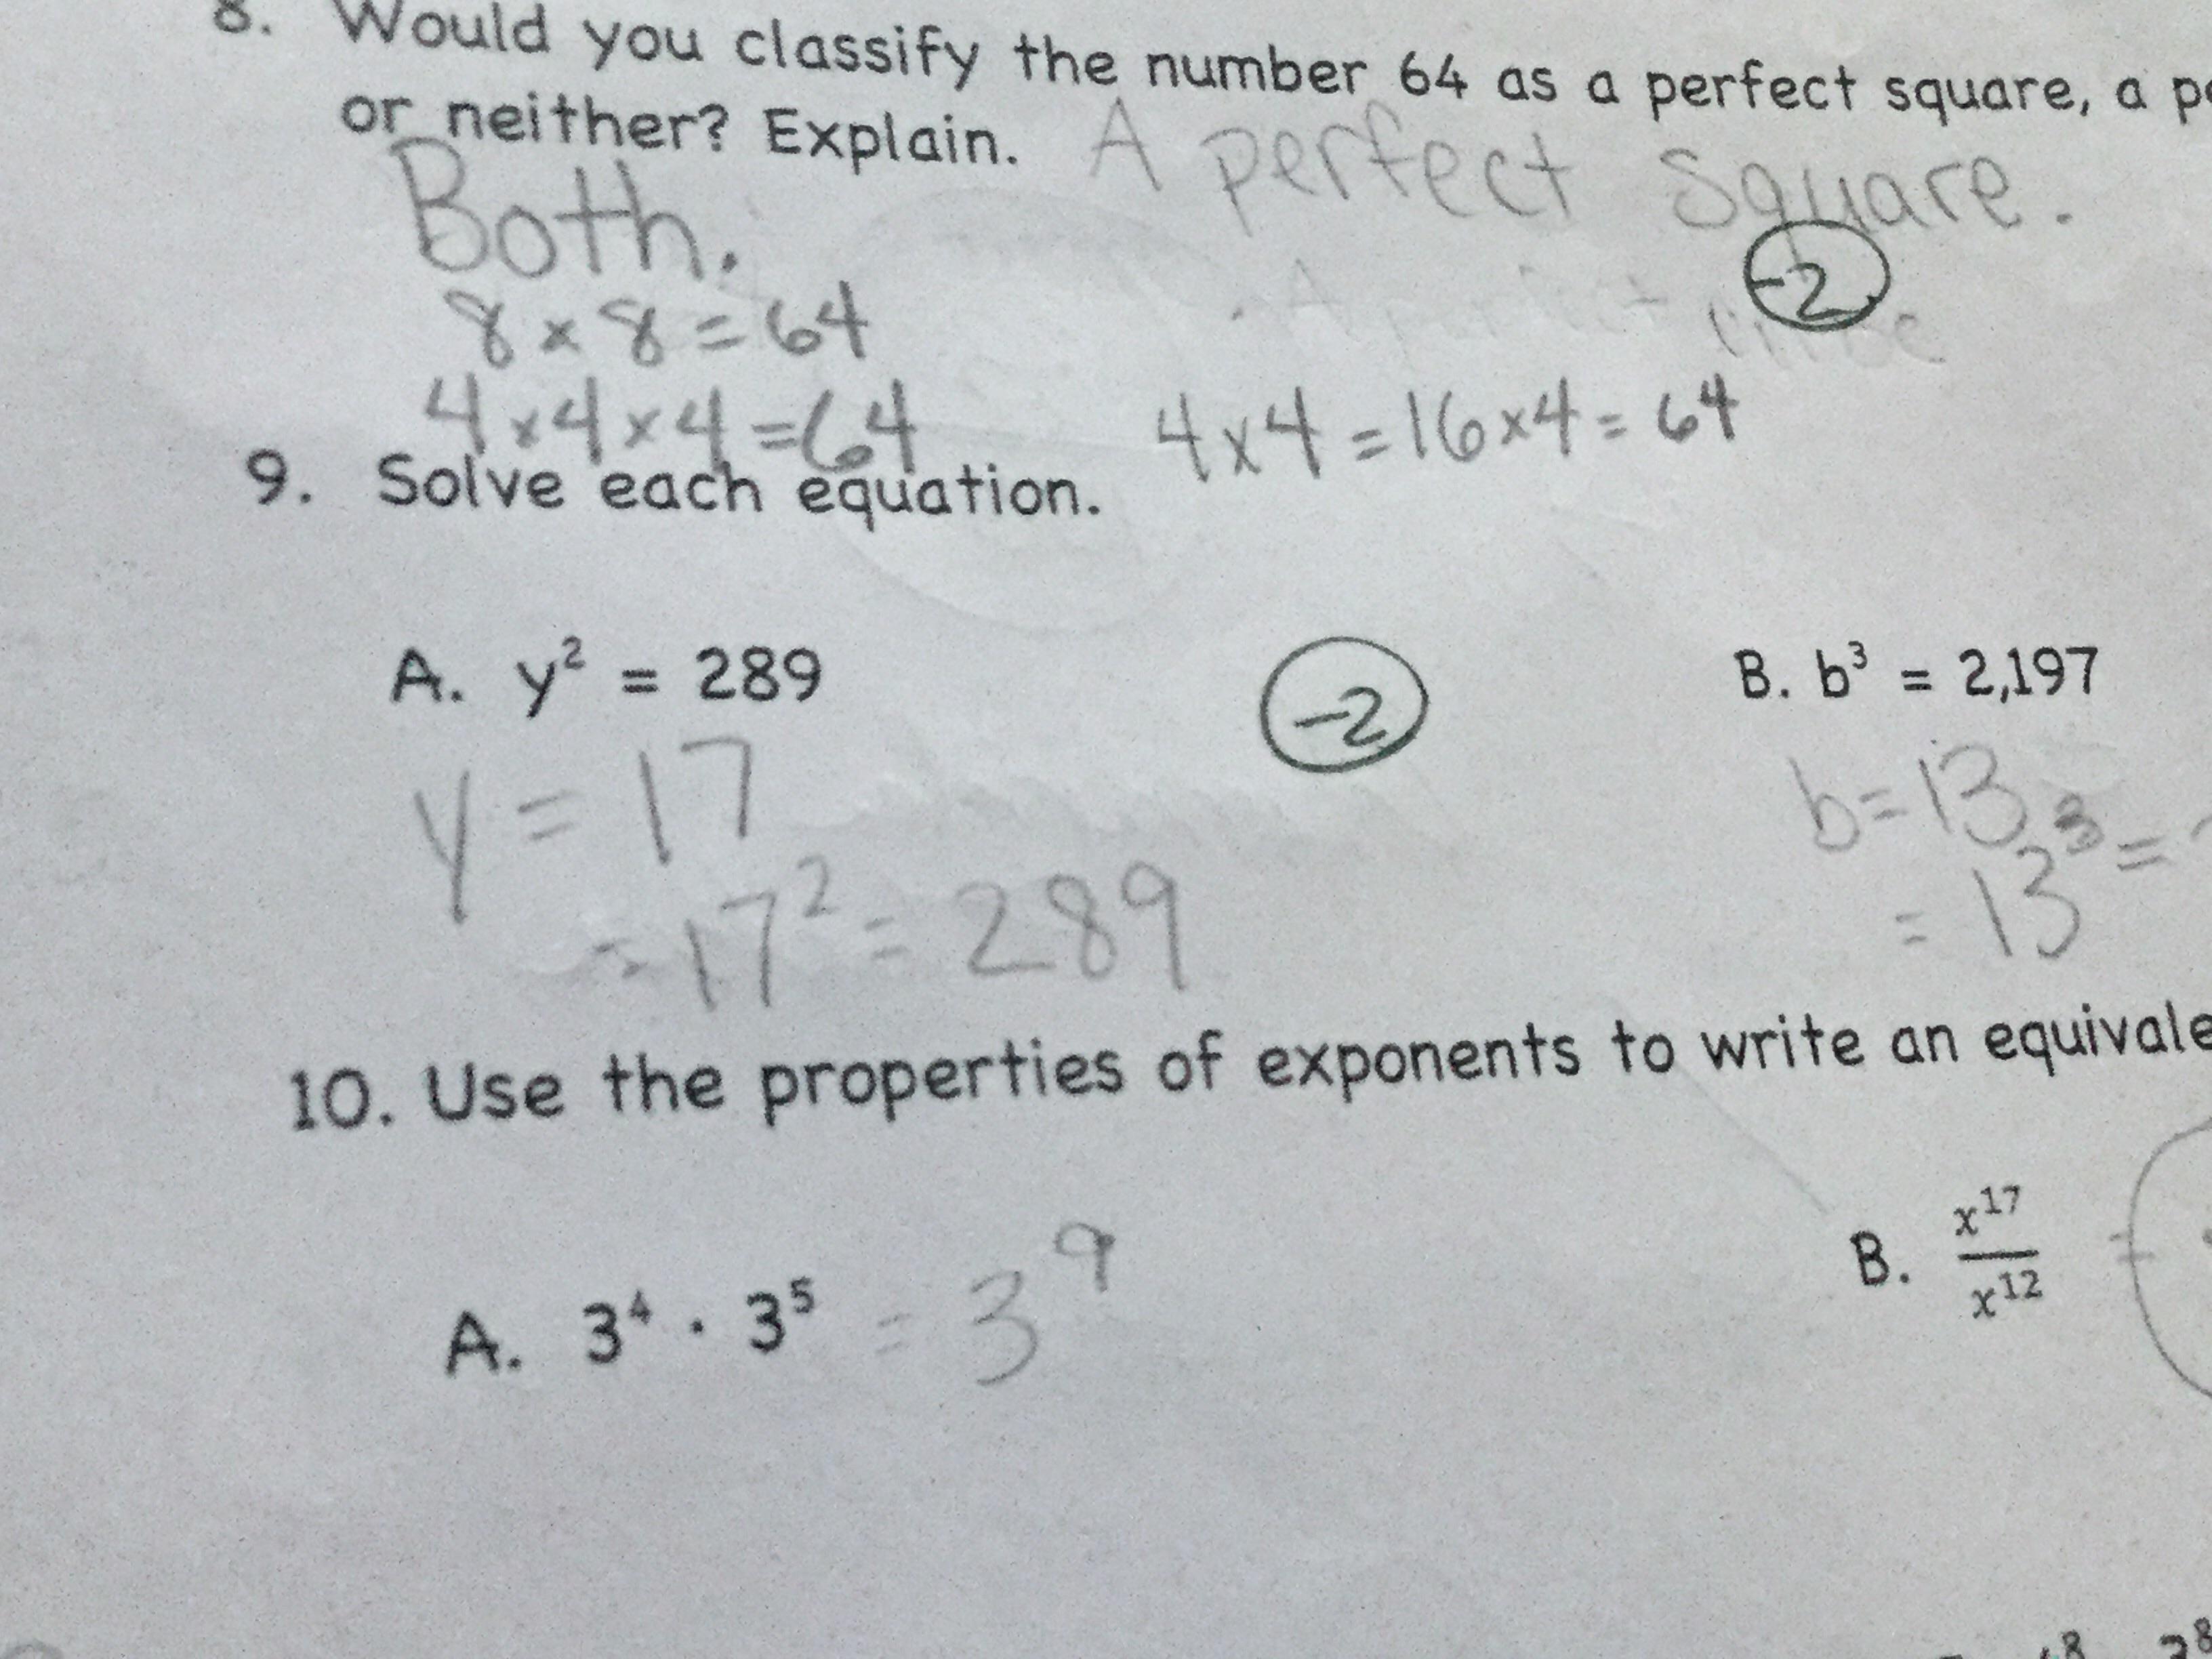 8. Would you classify the number 64 as a perfect square, a
or neither? Explain. A perfect square.
Both.
-2
8 x 8 = 64
4 x 4 x 4 = 64
4 x 4 = 16 x 4 = 64
9. Solve each equation.
A. y² = 289
-2
B. b³ = 2,197
y = 17
b = 13
= 17² = 289
= 13³ =
10. Use the properties of exponents to write an
A. 3⁴ · 3⁵ = 3⁹
B. x¹⁷
x¹² =